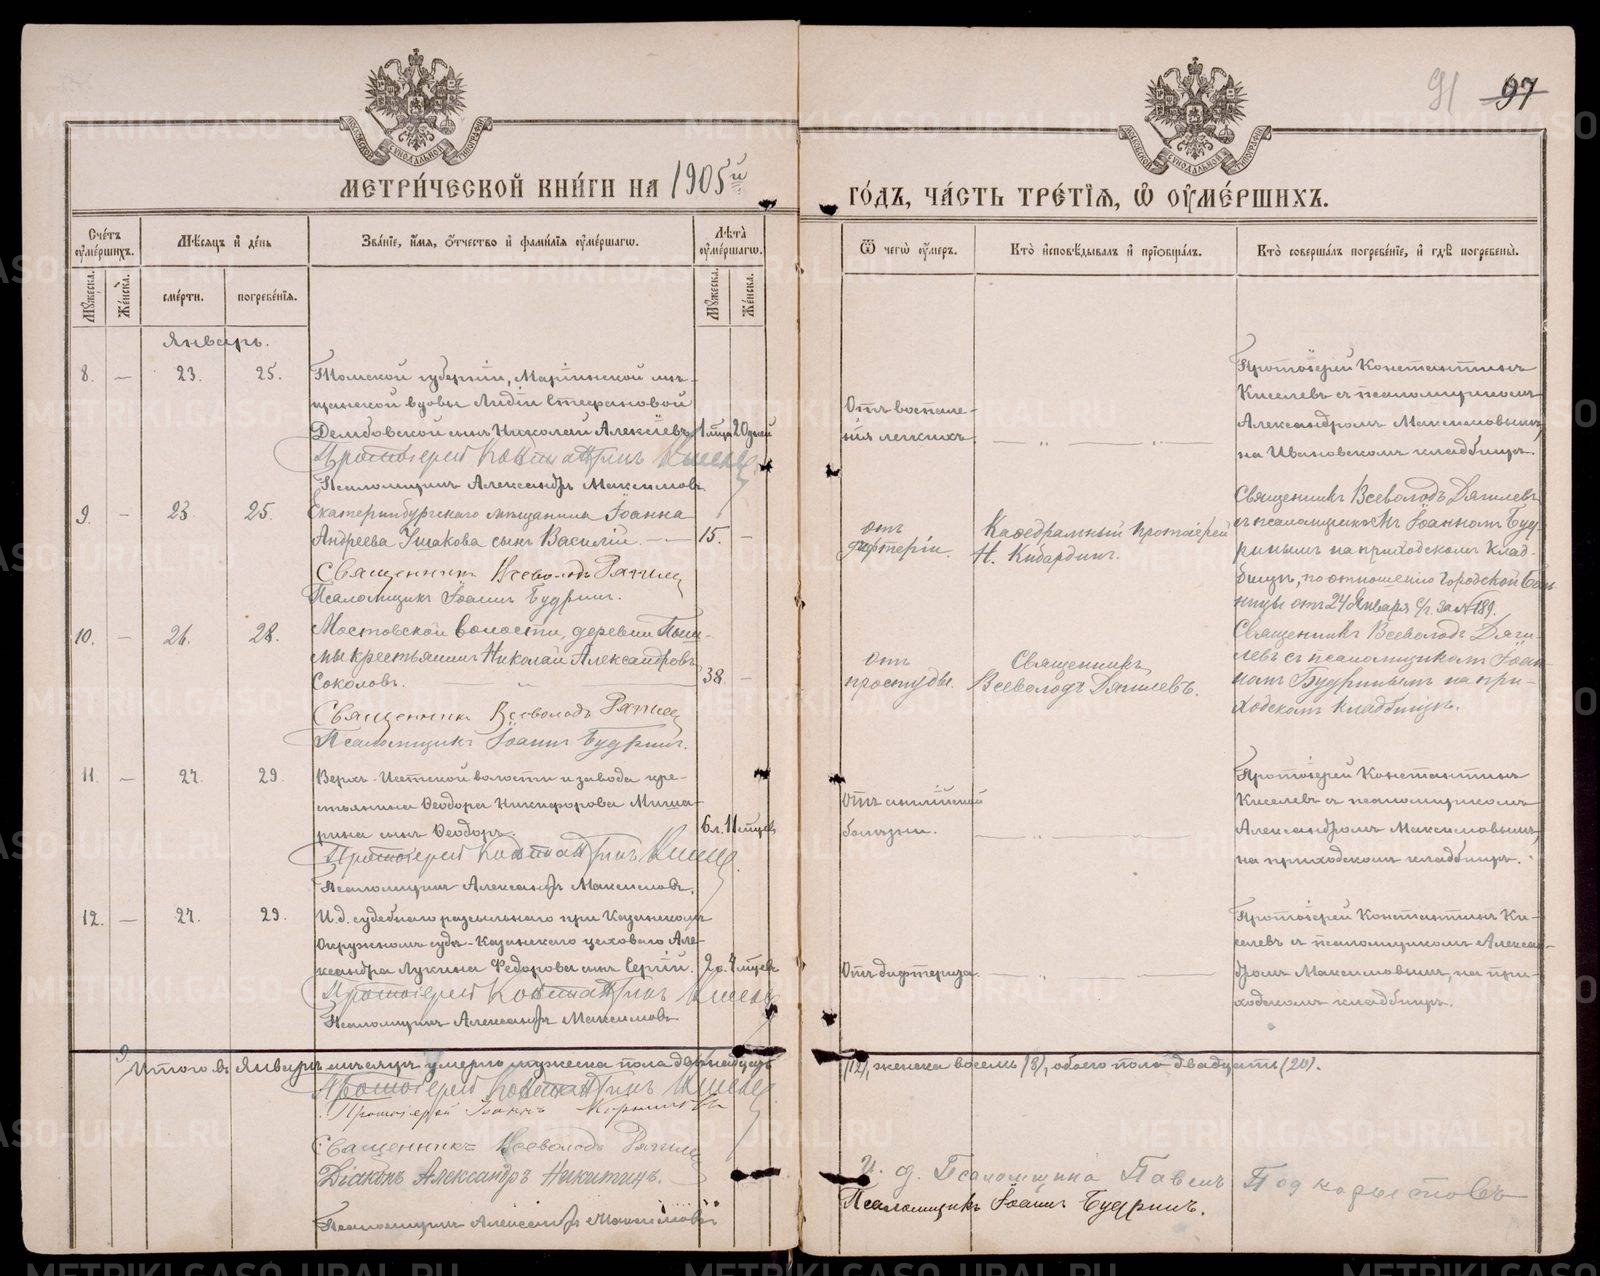 91 97
МЕТРИ́ЧЕСКОЙ КНИ́ГИ НА 1905й
ГО́ДЪ, ЧА́СТЬ ТРЕ́ТІѦ, Ѽ ОУМЕ́РШИХЪ.
Сче́тъ оумершихъ.
Мѣсѧцъ и де́нь
Зва́нїе, и́мѧ, о́тчество и фами́лїѧ оуме́ршагѡ.
Лѣ́та оуме́ршагѡ.
Ѿ чегѡ̀ оу́меръ.
Кто̀ исповѣ́дывалъ и прїобща́лъ.
Кто̀ соверша́лъ погребе́нїе, и гдѣ̀ погребены̀.
Мꙋ́жеска.
Же́нска.
сме́рти.
погребе́нїѧ.
Мꙋ́жеска.
Же́нска.
Январь.
8. — 23. 25.
Томской губерніи, Маріинской мѣ-
щанской вдовы Лидіи Стефановой
Дембовской сынъ Николай Алексѣевъ
1 мѣц. 20 дней
Протоіерей Константинъ Киселевъ
Псаломщикъ Александръ Максимовъ
Отъ воспале-
нія легкихъ.
Протоіерей Константинъ
Киселевъ съ псаломщикомъ
Александромъ Максимовымъ,
на Ивановскомъ кладбищѣ.
9. — 23. 25.
Екатеринбургскаго мѣщанина Іоанна
Андреева Ушакова сынъ Василій.
15. —
Священникъ Всеволодъ Дягилев
Псаломщикъ Іоаннъ Будринъ.
отъ
дифтеріи.
Каѳедральный протоіерей
Н. Кибардинъ.
Священникъ Всеволодъ Дягилевъ
съ псаломщикомъ Іоанномъ Буд-
ринымъ на приходскомъ клад-
бищѣ, по отношенію Городской Боль-
ницы отъ 24 Января с/г. за № 189.
10. — 26. 28.
Мостовской волости, деревни
мы крестьянинъ Николай Александровъ
Соколовъ.
38. —
Священникъ Всеволодъ Дягилев
Псаломщикъ Іоаннъ Будринъ.
отъ
простуды.
Священникъ
Всеволодъ Дягилевъ.
Священникъ Всеволодъ Дяги-
левъ съ псаломщикомъ Іоан-
номъ Будринымъ на при-
ходскомъ кладбищѣ.
11. — 27. 29.
Верхъ-Исетской волости и завода кре-
стьянина Ѳеодора Никифорова Миша-
рина сынъ Ѳеодоръ.
6 л. 11 мѣцев
Протоіерей Константинъ Киселевъ
Псаломщикъ Александръ Максимовъ.
Отъ англійской
болѣзни.
Протоіерей Константинъ
Киселевъ съ псаломщикомъ
Александромъ Максимовымъ,
на приходскомъ кладбищѣ.
12. — 27. 29.
И. д. судебнаго разсыльнаго при Казанскомъ
Окружномъ судѣ - Казанскаго цеховаго Але-
ксандра Лукина Федорова сынъ Сергій.
2 г. 4 мѣцев
Протоіерей Константинъ Киселевъ
Псаломщикъ Александръ Максимовъ
Отъ дифтерита.
Протоіерей Константинъ Ки-
селевъ съ псаломщикомъ Алексан-
дромъ Максимовымъ, на при-
ходскомъ кладбищѣ.
Итого въ Январѣ мѣсяцѣ умерло мужеска пола двѣнадцать
(12), женска восемь (8), обоего пола двадцать (20).
Протоіерей Константинъ Киселевъ
Протоіерей Іоаннъ
Священникъ Всеволодъ Дягилев
Діаконъ Александръ Никитинъ.
Псаломщикъ Александръ Максимовъ
И. д. Псаломщика Павелъ Подкорытовъ
Псаломщикъ Іоаннъ Будринъ.
METRIKI.GASO-URAL.RU